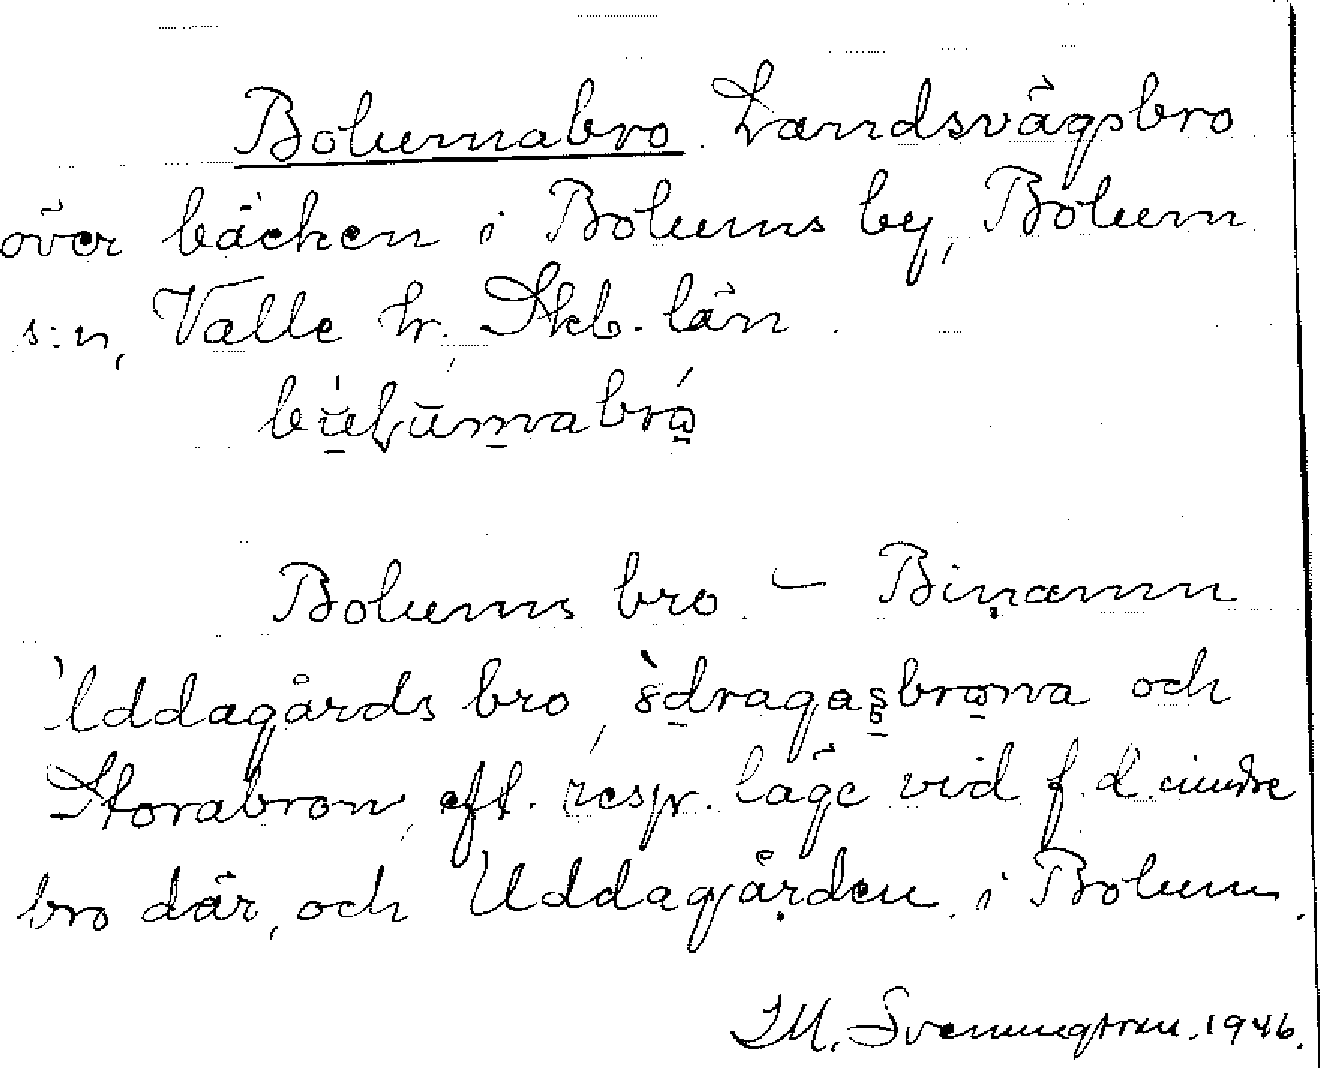 Bolumabro. Landsvägsbro
över bäcken i Bolums by, Bolum
s:n, Valle hr, Skb. län.
Bolums bro – Binamn
Uddagårds bro, och
Storabron, eft. resp. läge vid f.d. mindre
bro där, och Uddagården i Bolum.
J M. Svenungsson. 1946.